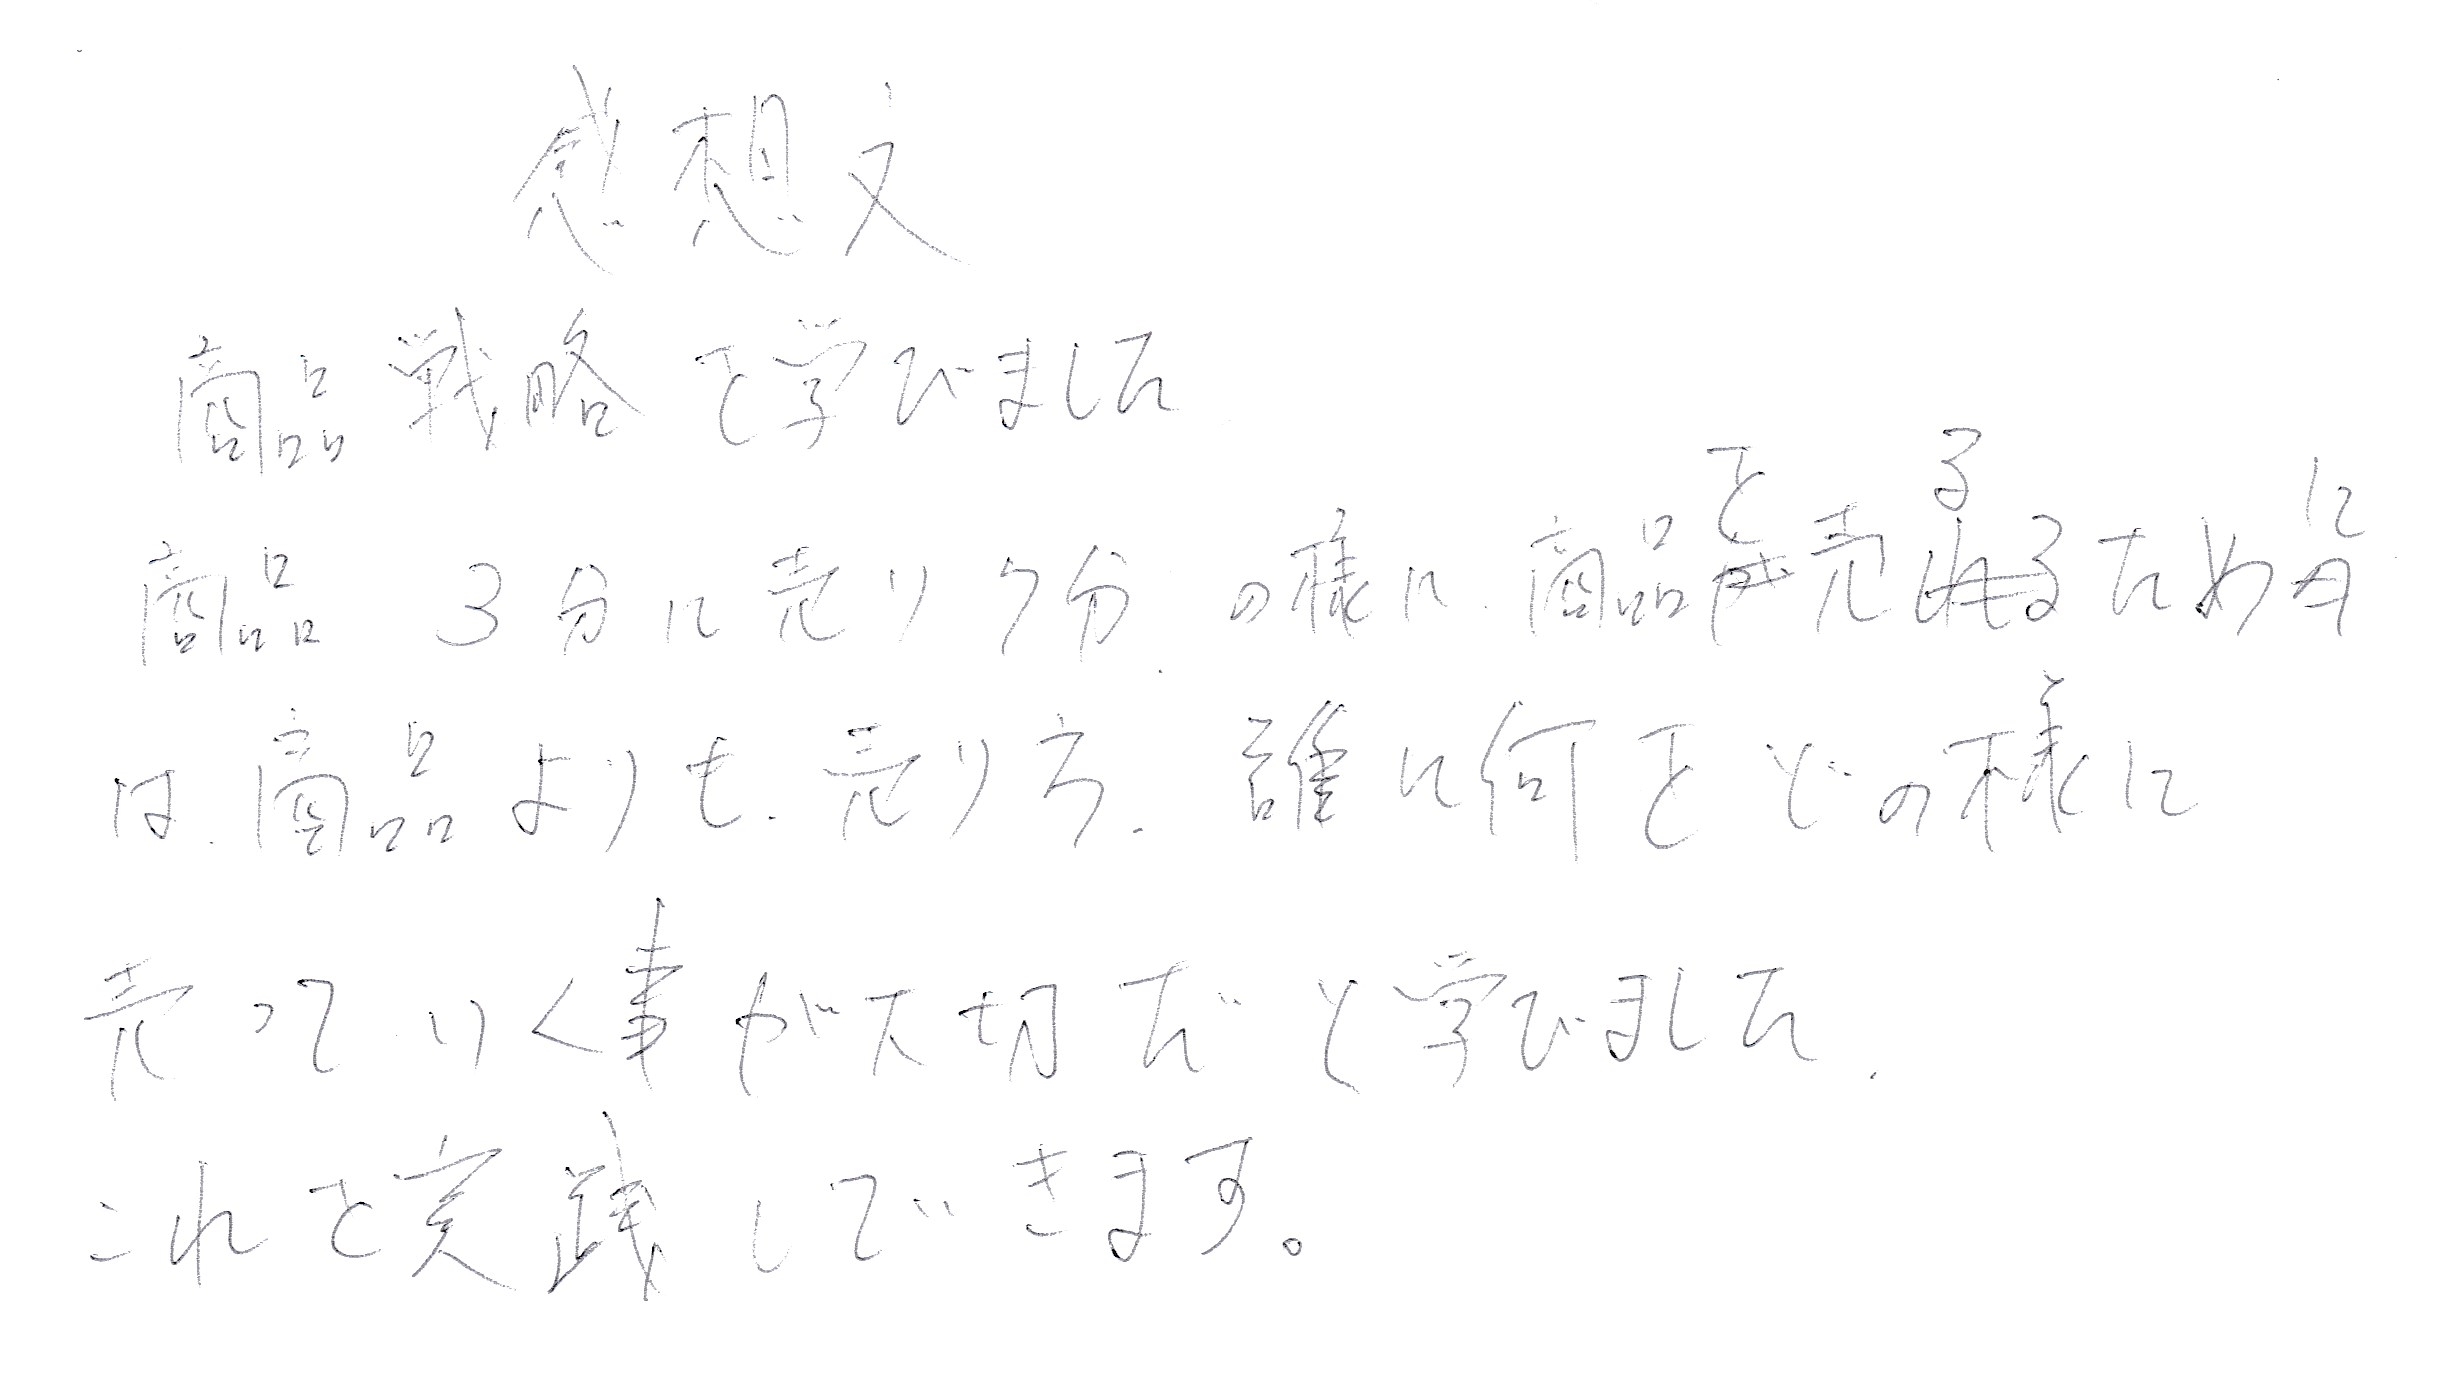 感想文
商品戦略を学びました
商品3分に売り7分の様に、商品を売るために
は、商品よりも、売り方、誰に何をどの様に
売っていく事が大切だと学びました。
これを実践していきます。